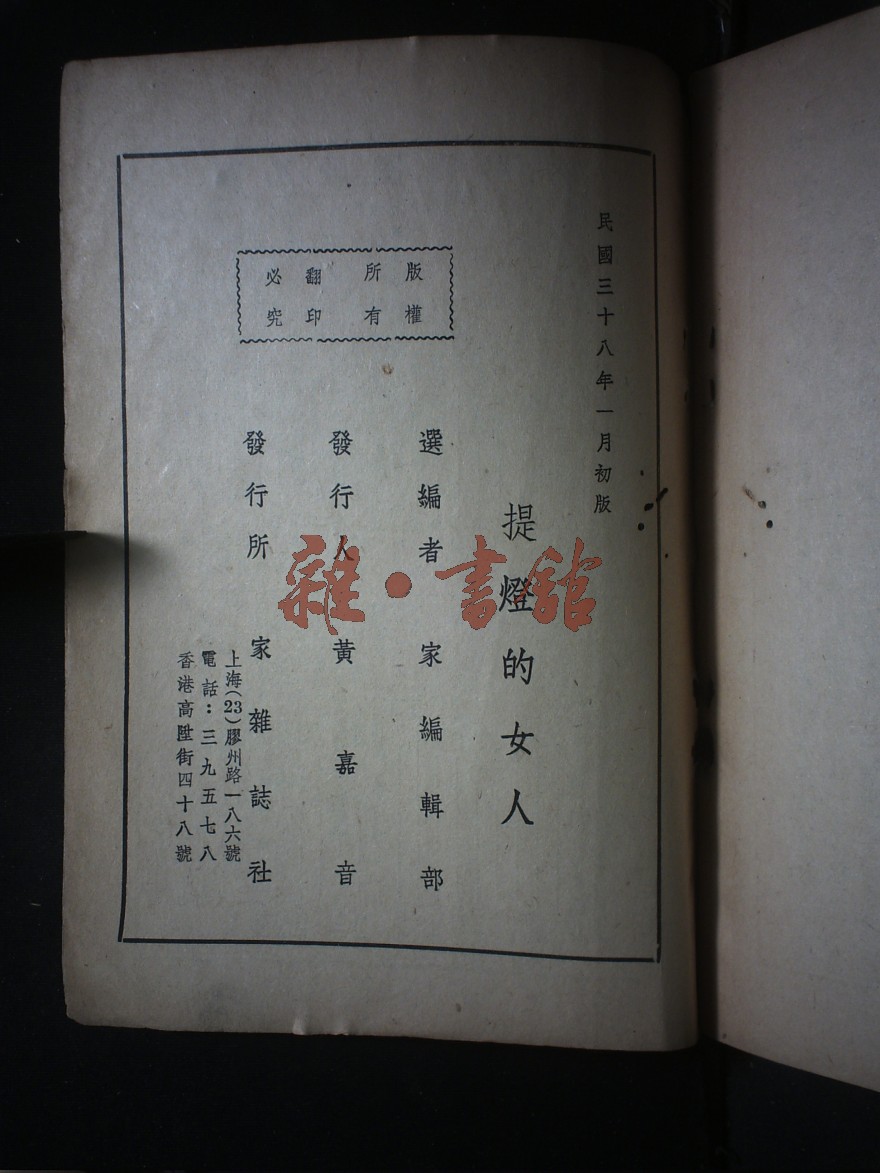 民國三十八年一月初版
提燈的女人
版權所有
翻印必究
選編者 家編輯部
發行人 黃嘉音
發行所 家雜誌社
上海(23)膠州路一八六號
電話：三九五七八
香港高陞街四十八號
雜·書館